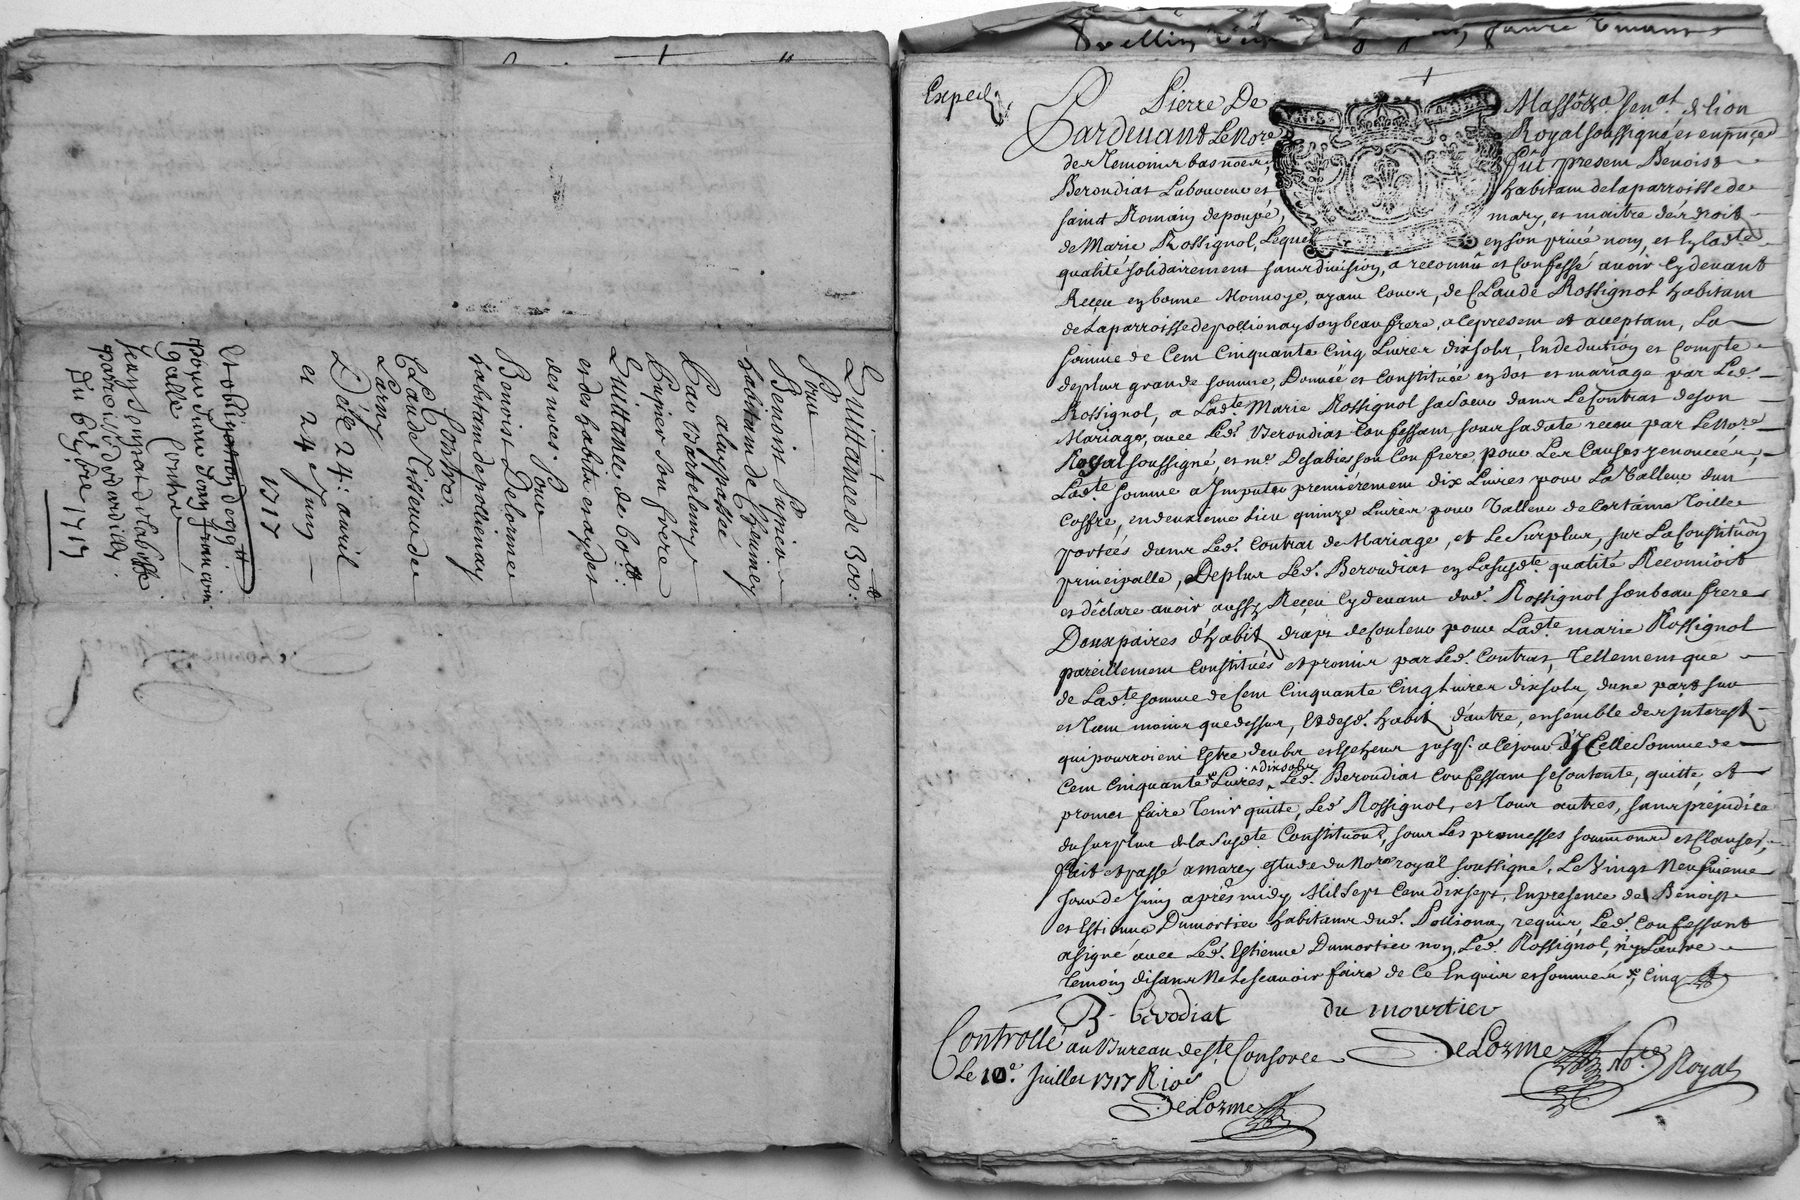 Quittance de 300:tt
Pour
Benoist
habitant de Cheuiney
a luy passée
Par Bartelemy
Papier son frere
Quittance de 60tt:
et des habits et aydes
des noces. Pour
Benoist Delorme
habitant de pollienay
Contre
CLaude Tisseur de
Larny
Du 24: auril
et 24e Juin
1717
et obligation de 99tt
Jean
parroisse
1717
Expedié
Pierre De
Pardeuant Le Nore
Royal soussigné, et en pnce
des Temoins bas només,
fût present Benoist
Berondiat Laboureur et
habitant de la parroisse de
sainct Romain de popé,
mary, et maitre des droits
de Marie Rossignol, Lequel
en son priué nom, et en ladte
qualité solidairement sans diuision, a reconnû et Confessé auoir Cy deuant
Reçeu en bonne Monnoye, ayant Cours, de CLaude Rossignol habitant
de La parroisse de pollionay son beau frere, a ce present et acceptant, La
somme de Cent Cinquante Cinq Liures dix sols, En deduction et Compte
de plus grande somme, Donnée et Constituée en dot et mariage par Led.
Rossignol, a Ladte Marie Rossignol sa soeur dans Le Contrat de son
Mariage, auec Led. Berondiat Confessant, sous sa date receu par Le Nore
Royal soussigné, et me Desabies son Confrere, pour Les Causes y enoncées,
Ladte somme a Imputer premierement dix Liures pour La Valleur d'un
Coffre, en deuxieme Lieu quinze Liures pour Valleur de Certaine Toille
portées dans Led. Contrat de Mariage, et Le Surplus, sur La Constitution
principalle, De plus Led. Berondiat en La susdte qualité Reconnoit
et déclare auoir aussy Reçeu Cy deuant dud. Rossignol son beau frere
Deux paires d'habit draps de Couleur pour Ladte marie Rossignol
pareillement Constitués et promis par Led. Contrat, Tellement que
de Ladte somme de Cent Cinquante Cinq Liures dix sols, d'une part sur
et Tant moins que dessus, Et desd. habit d'autre, ensemble des Interest
qui pourroient Estre deubs et Escheus jusqs. a Ce jour d'Icelle Somme de
Cent Cinquante Liures dix sols, Led. Berondiat Confessant se Contente, quitte, et
promet faire Tenir quitte, Led. Rossignol, et Tous autres, sans prejudice
du surplus de la Susdte Constitution, sous Les promesses soumons et Clauses,
Fait et passé a marcy estude du Nore royal soussigné, Le Vingt Neufuieme
Jour de Juin après midy Mil sept Cent dix sept, En presence de Benoist
et Estienne Dumortier habitans dud. Pollionay, requis, Led. Confessant
a signé auec Led. Estienne Dumortier non Led. Rossignol, ny L'autre
temoin disant Ne Le scauoir faire de Ce Enquis et sommés, cinq
B. berodiat du mourtier
DeLorme Nre Royal
Controllé au Bureau de Ste Consorce
Le 10e. Juillet 1717
DeLorme